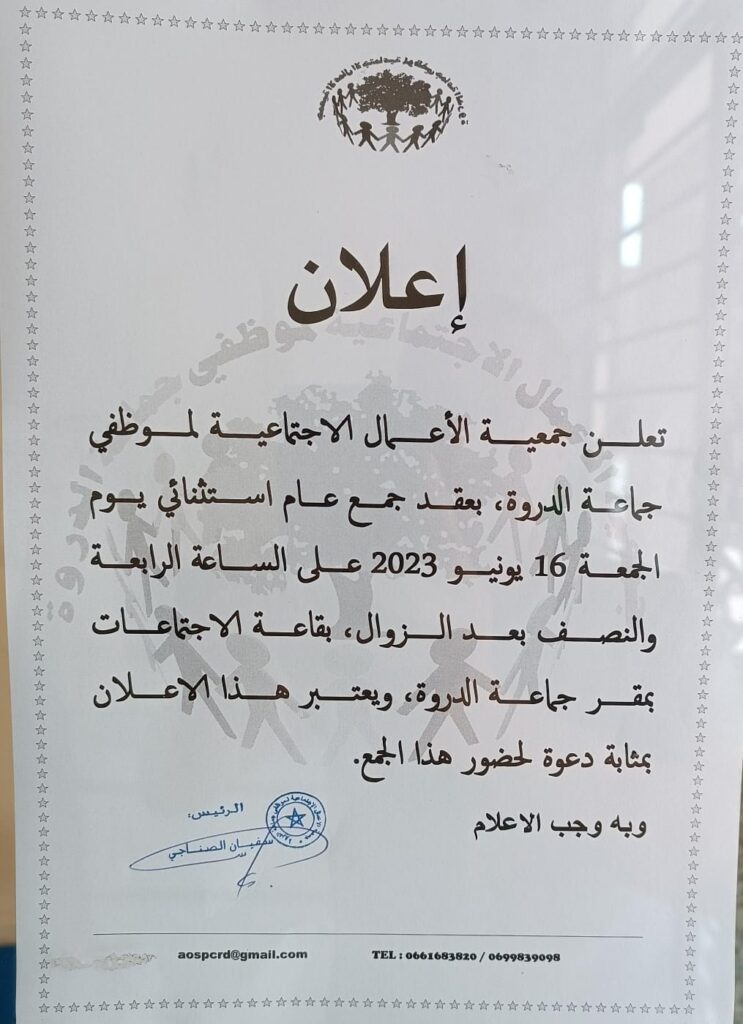 إعلان
تعلن جمعية الأعمال الاجتماعية لموظفي
جماعة الدروة، بعقد جمع عام استثنائي يوم
الجمعة 16 يونيو 2023 على الساعة الرابعة
والنصف بعد الزوال، بقاعة الاجتماعات
بمقر جماعة الدروة، ويعتبر هذا الاعلان
بمثابة دعوة لحضور هذا الجمع.
وبه وجب الاعلام
الرئيس:
سفيان الصناجي
aospcrd@gmail.com TEL : 0661683820 / 0699839098